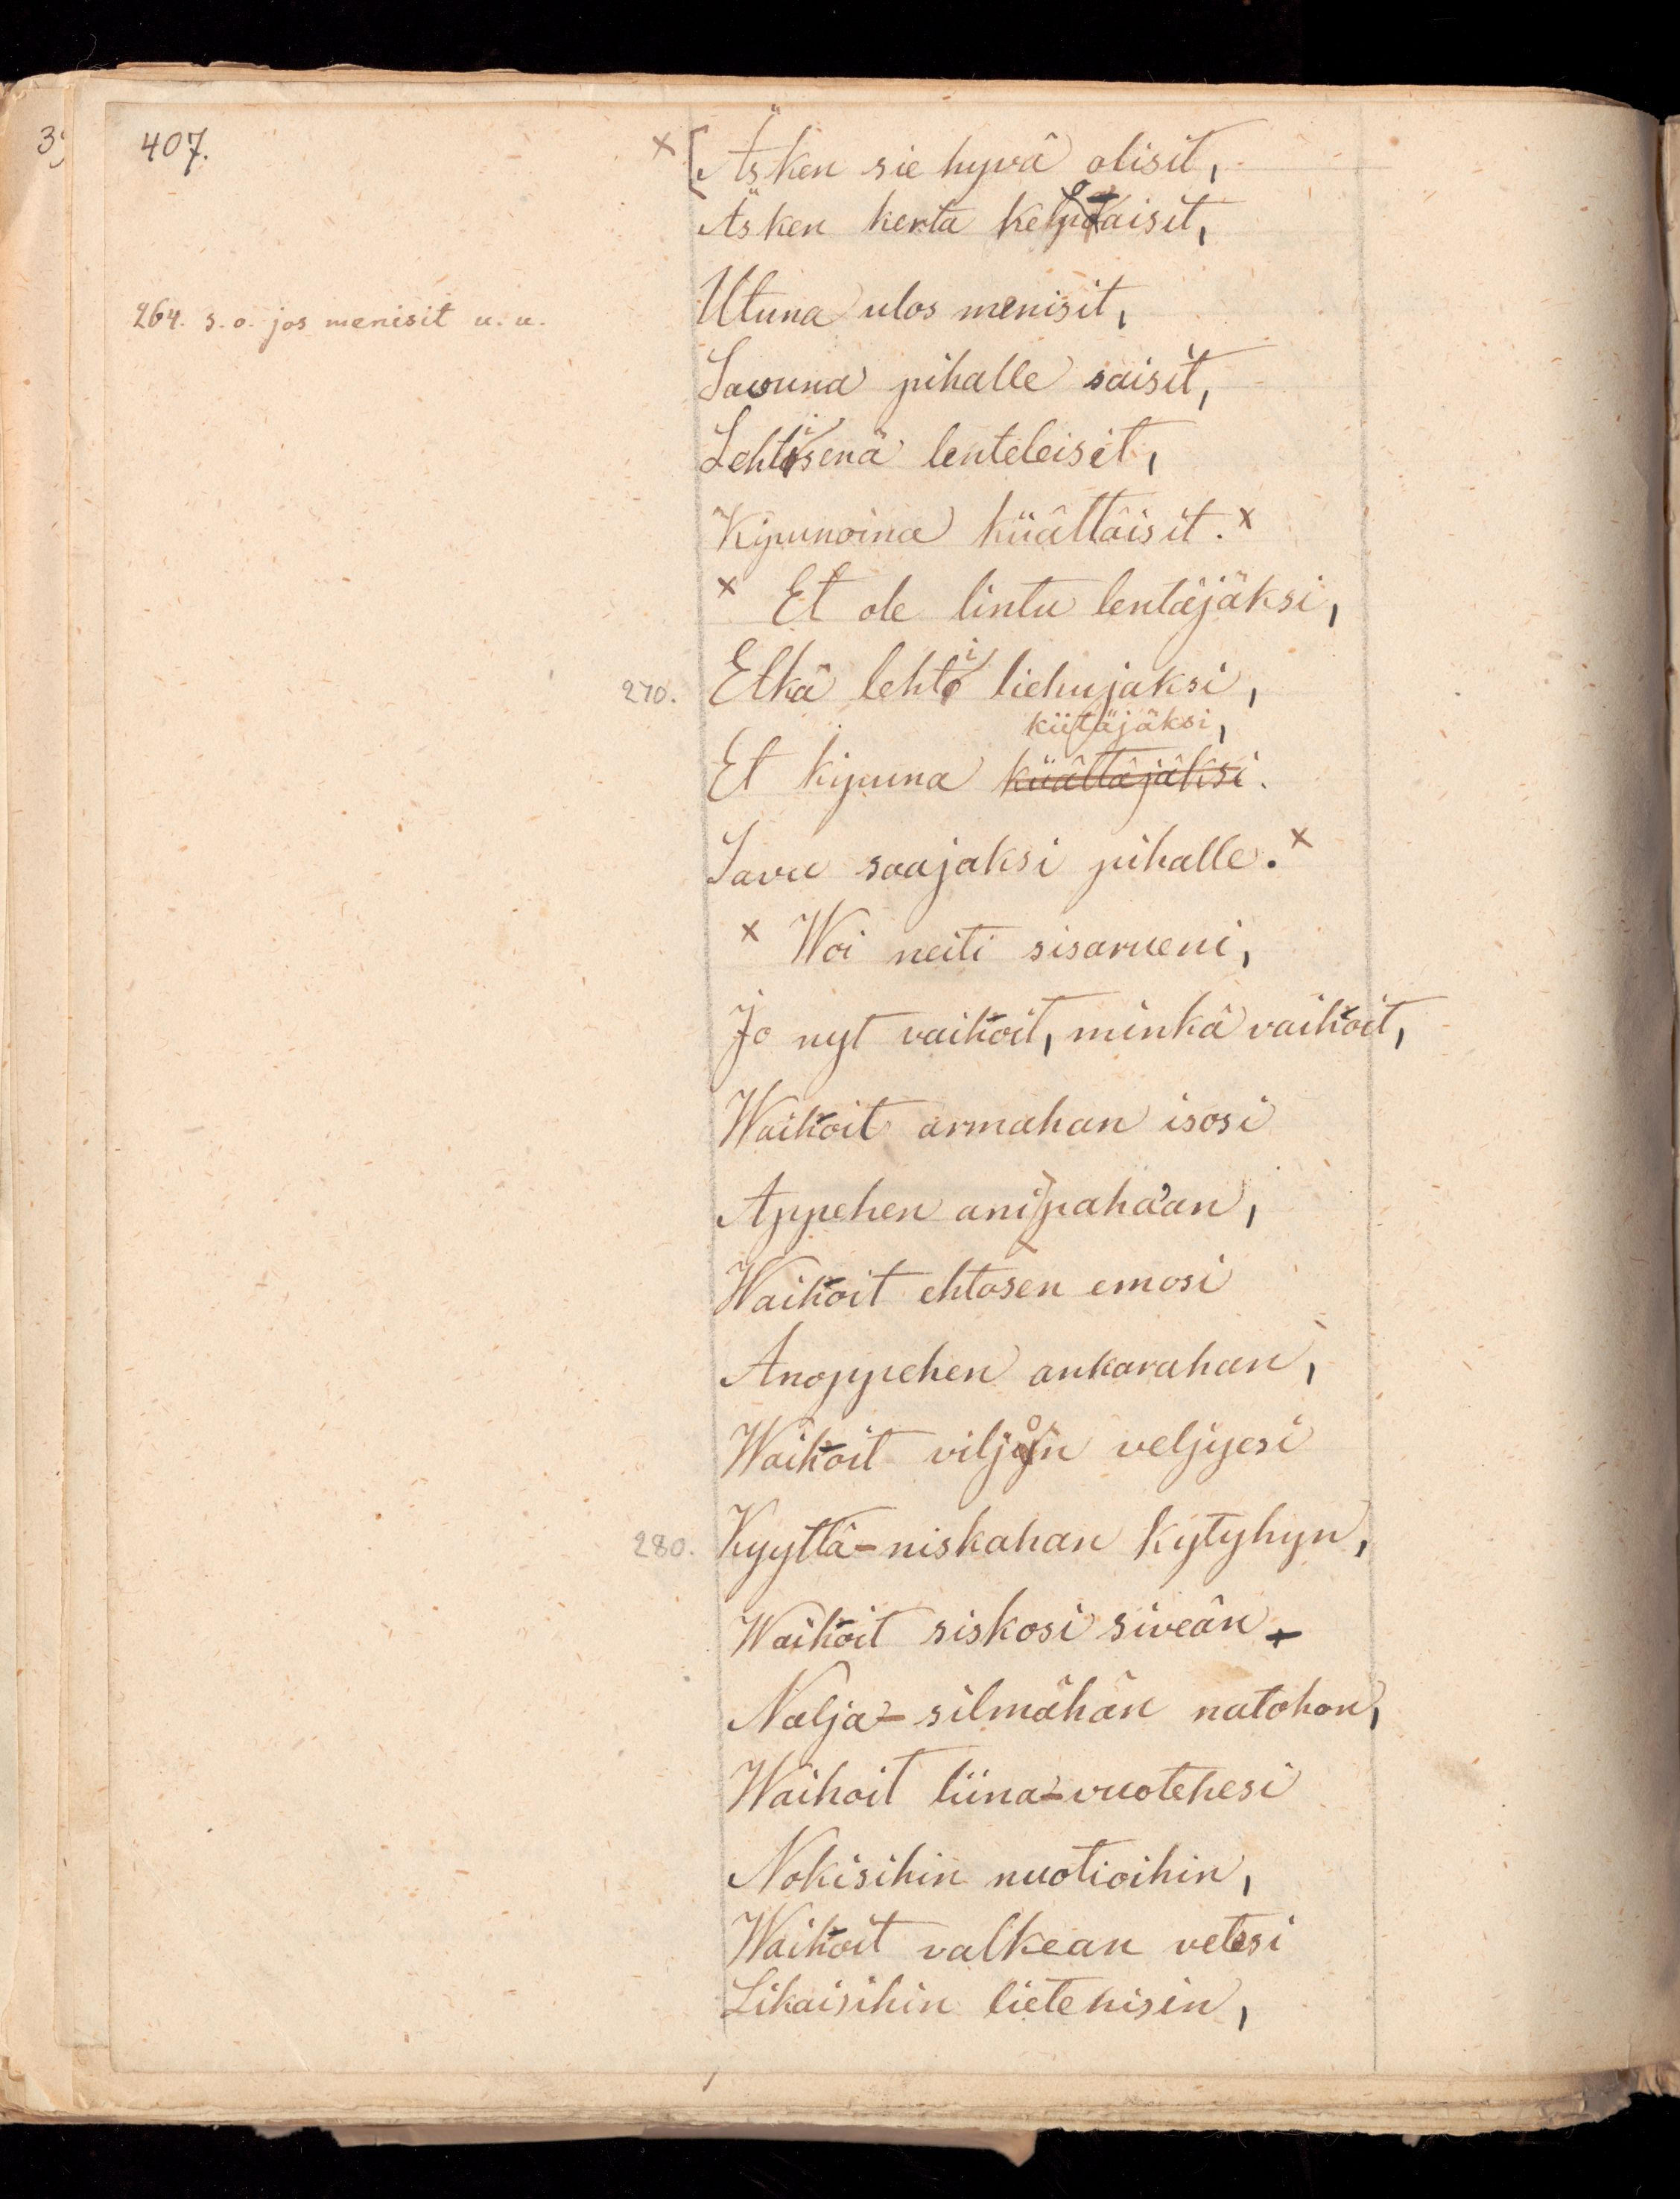 407.
× [Äsken sie hyvä olisit,
Äsken kerta kelpoaisit,
264. s. o. jos menisit u. u.
Utuna ulos menisit,
Savuna pihalle saisit,
Lehtisenä lenteleisit,
Kipunoina kiiättäisit. ×
× Et ole lintu lentäjäksi,
270. Etkä lehti liehujaksi,
kiitäjäksi,
Et kipuna kiiättäjäksi.
Savu saajaksi pihalle. ×
× Woi neiti sisarueni,
Jo nyt vaihoit, minkä vaihoit,
Waihoit armahan isosi
Appehen ani pahaan,
Waihoit ehtosen emosi
Anoppehen ankarahan,
Waihoit viljon veljyesi
280. Kyyttä-niskahan kytyhyn,
Waihoit siskosi siveän
Nalja-silmähän natohon,
Waihoit liina-vuotehesi
Nokisihin nuotioihin,
Waihoit valkean vetesi
Likaisihin lietehisin,